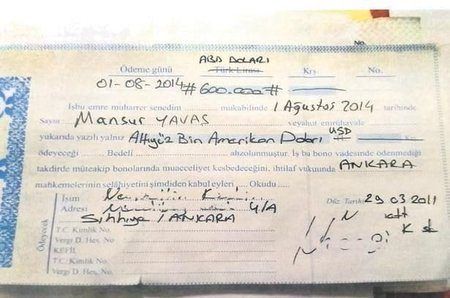 No.
ABD DOLARI
Ödeme günü Türk Lirası Krş. No.
01-08-2014 #600.000#
İşbu emre muharrer senedim mukabilinde 1 Ağustos 2014 tarihinde
Sayın Mansur YAVAŞ veyahut emrühavale
yukarıda yazılı yalnız Altıyüz Bin Amerikan Doları USD Krş.
ödeyeceği Bedeli ahzolunmuştur. İş bu bono vadesinde ödenmediği
takdirde müteakip bonolarında muacceliyet kesbedeceğini, ihtilaf vukuunda ANKARA
mahkemelerinin selâhiyetini şimdiden kabul eyleri Okudu
İsim
Düz. Tarihi 29 03 2011
Adresi 4/A
Sıhhiye / ANKARA
Ödeyecek
T.C. Kimlik No.
Vergi D. Hes. No
KEFİL
T.C. Kimlik No.
Vergi D. Hes. No